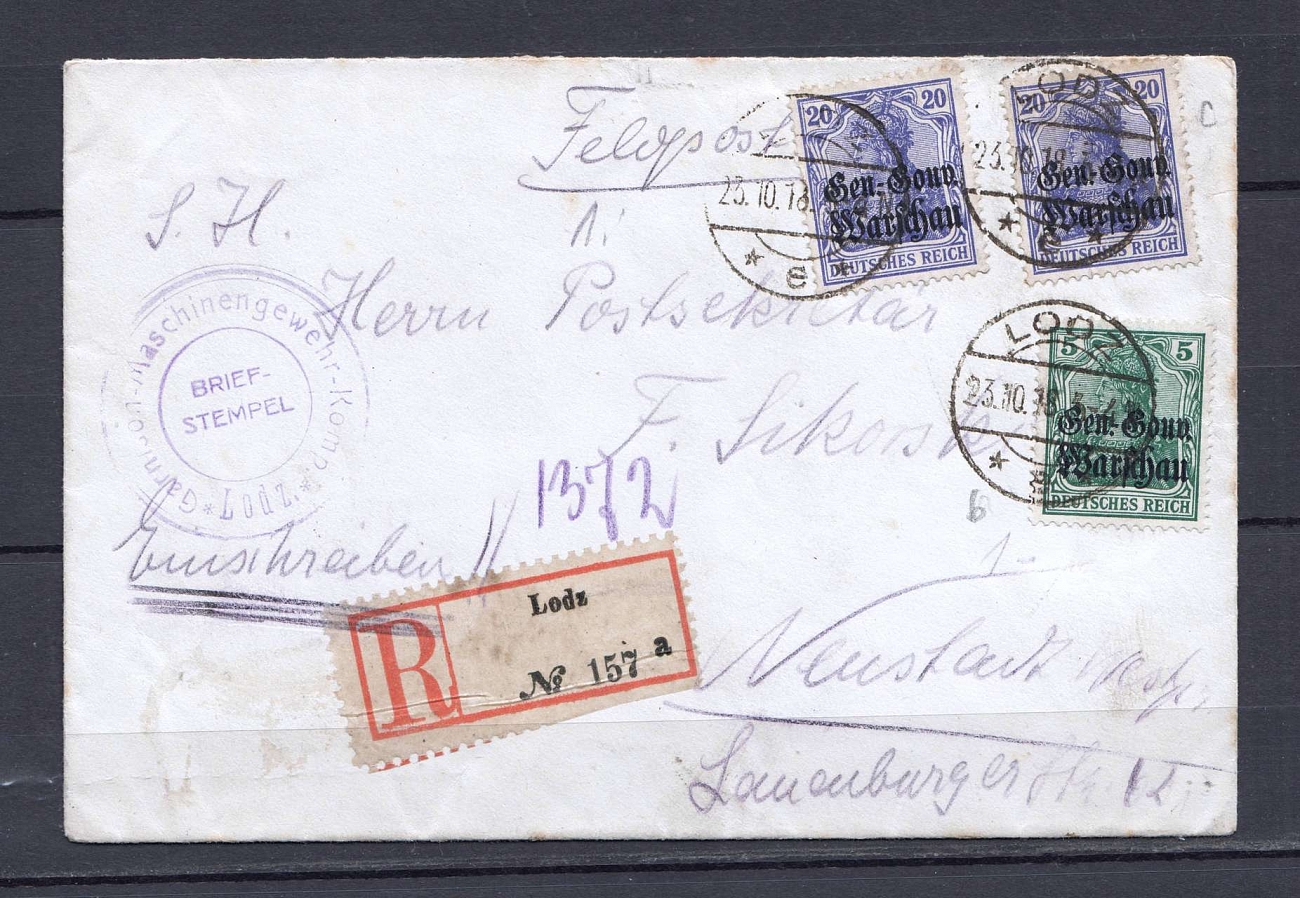 Feldpost
S. H.
1.
Herrn Postsekretär
F. Sikorski
1372
Einschreiben
Neustadt Westpr.
Lauenburger Str. 12
Garnison-Maschinengewehr-Komp.
BRIEF-
STEMPEL
Lodz
R
№ 157 a
20 20
Gen.-Gouv.
Warschau
DEUTSCHES REICH
23.10.18
* e *
20 20
Gen.-Gouv.
Warschau
DEUTSCHES REICH
LODZ
23.10.18
* e *
5 5
Gen.-Gouv.
Warschau
DEUTSCHES REICH
LODZ
23.10.18
C
b